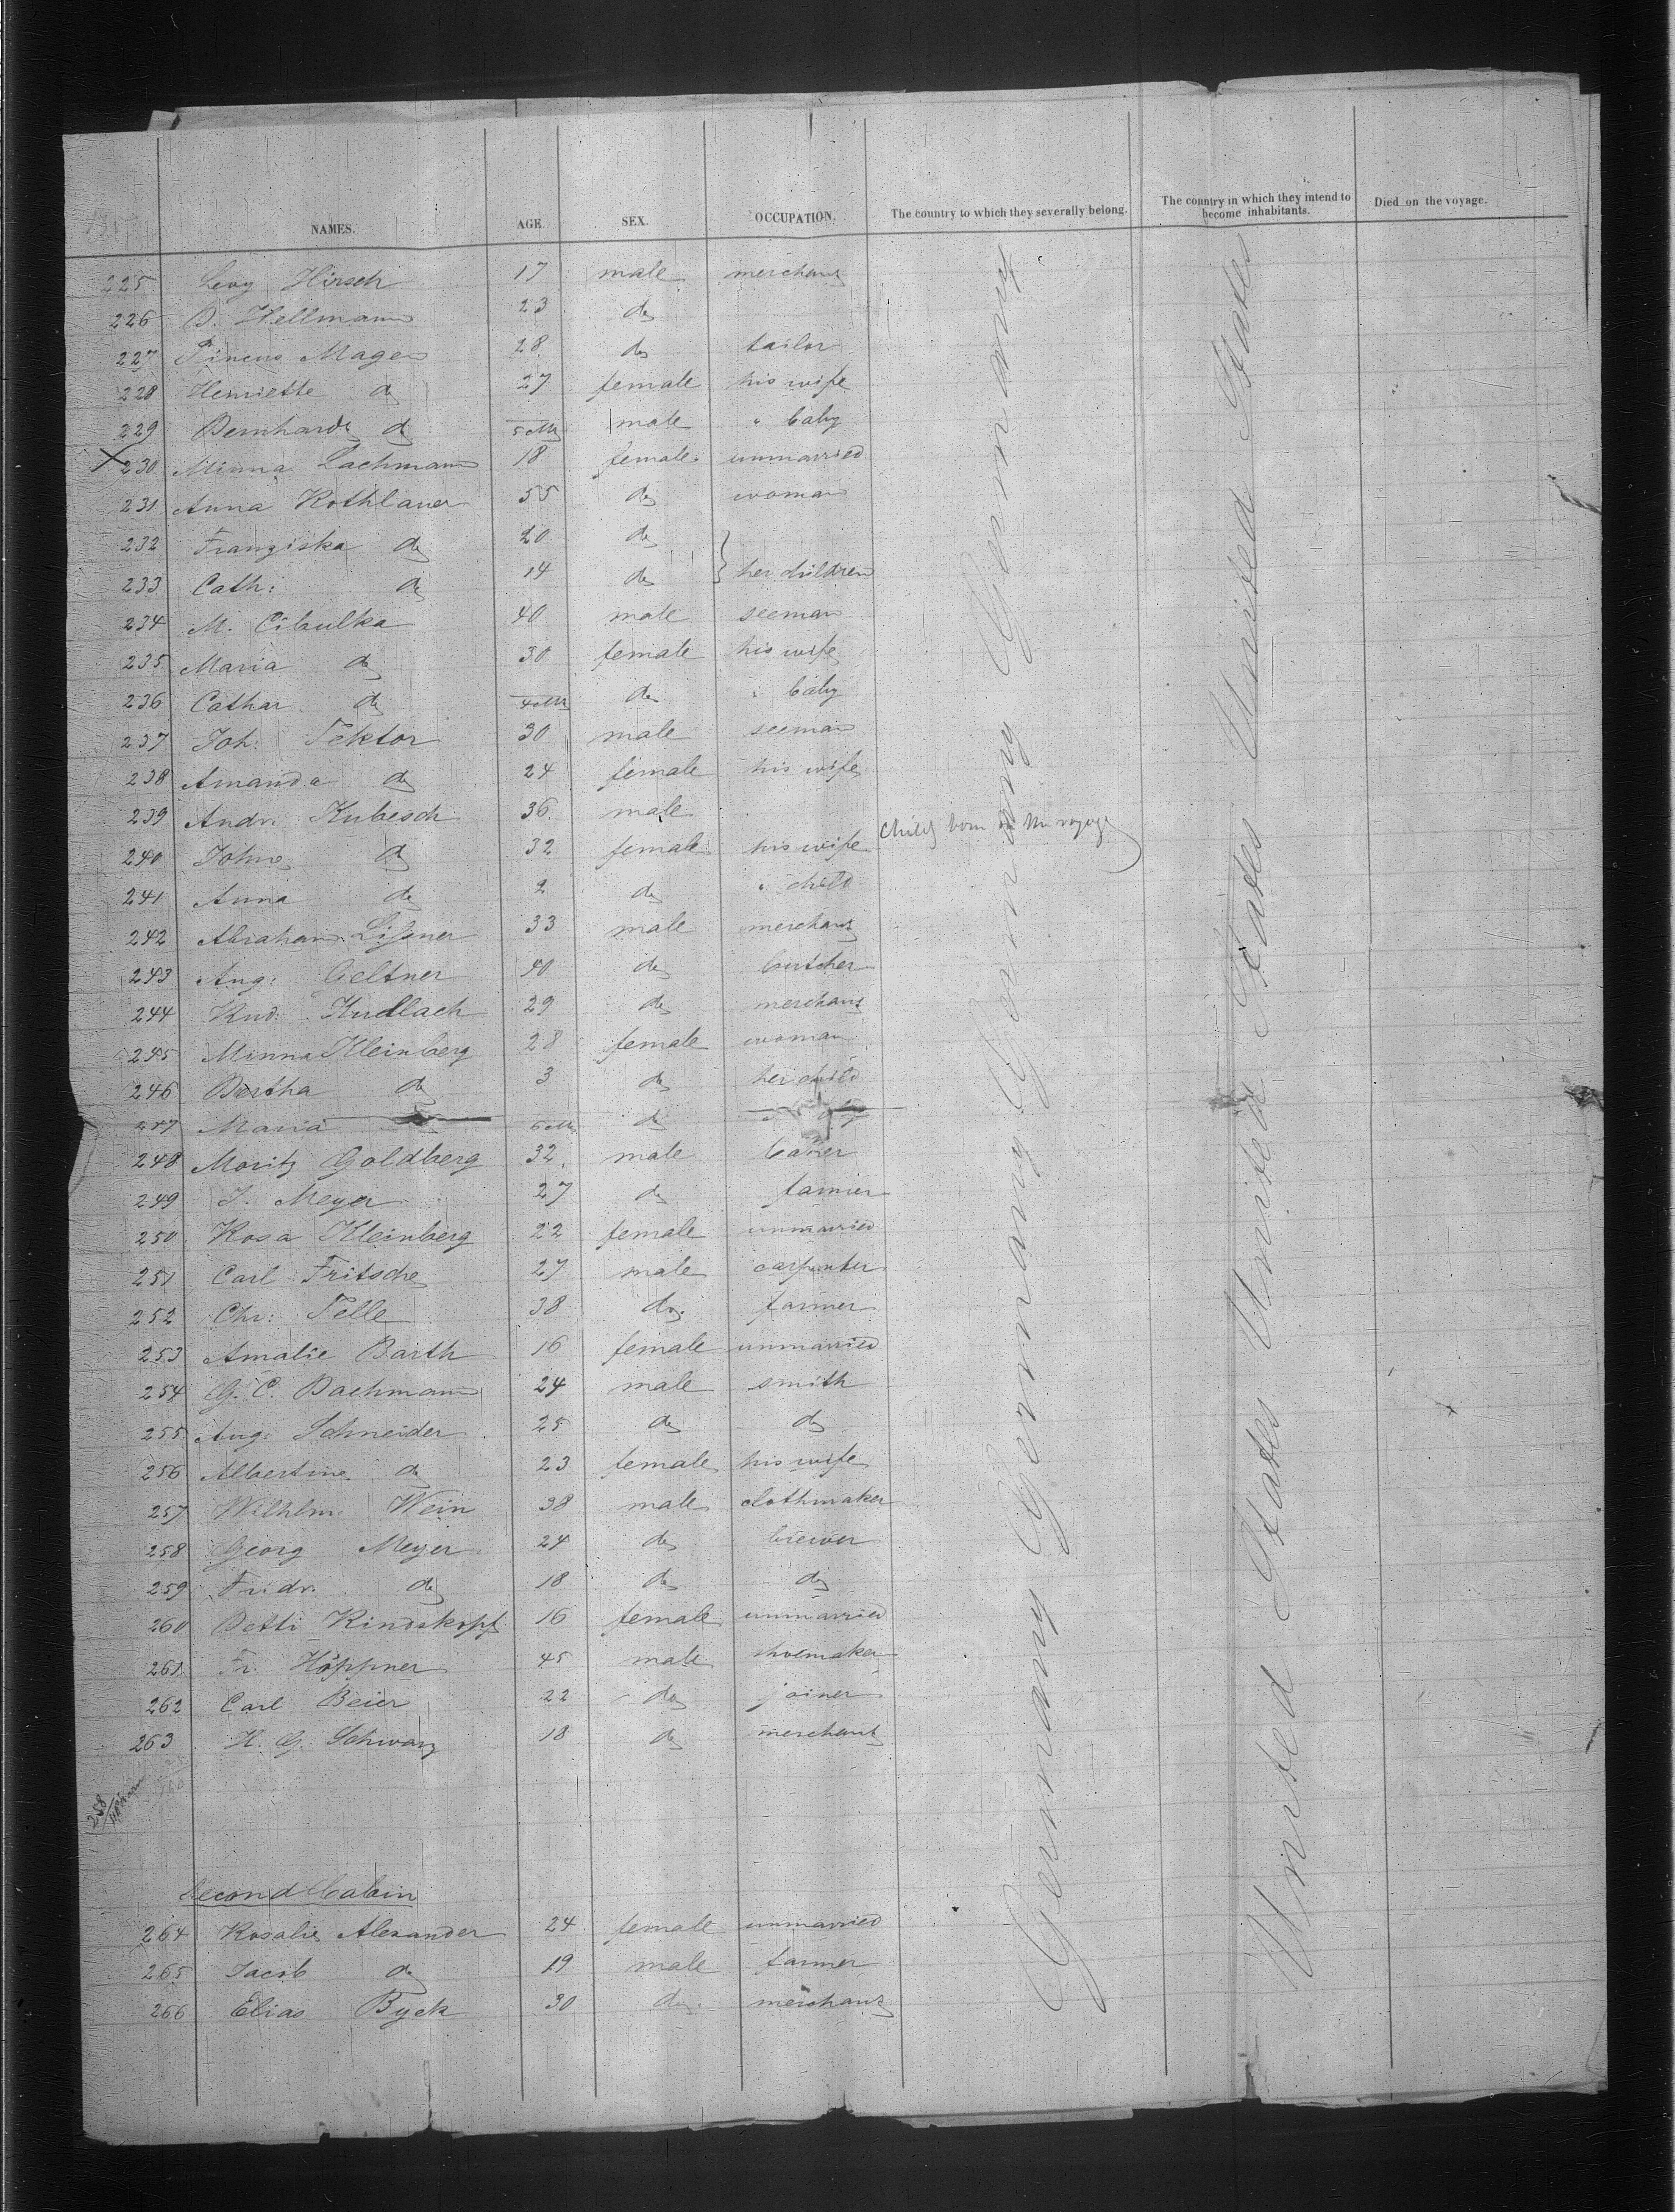 NAMES. AGE. SEX. OCCUPATION. The country to which they severally belong. The country in which they intend to become inhabitants. Died on the voyage.
225 Levy Hirsch 17 male merchant
226 B. Hellmann 23 do
227 Pincus Magen 28 do tailor
228 Henriette do 27 female his wife
229 Bernhardt do 5 Mts male " baby
230 Minna Lachmann 18 female unmarried
231 Anna Rothlauer 55 do woman
232 Franziska do 20 do
233 Cath: do 14 do } her children
234 M. Cibulka 40 male seeman
235 Maria do 30 female his wife
236 Cathar do 4 Mts do " baby
237 Joh: Tektor 30 male seeman
238 Amanda do 24 female his wife
239 Andr. Kubesch 36. male
240 Johne do 32 female his wife Child born on the voyage
241 Anna do 2 do " child
242 Abraham Lißner 33 male merchant
243 Aug: Geltner 40 do butcher
244 Rud. Kudlach 29 do merchant
245 Minna Kleinberg 28 female woman
246 Bertha do 3 do her child
247 Maria 6 Mts do
248 Moritz Goldberg 32. male
249 J. Meyer 27 do farmer
250 Rosa Kleinberg 22 female unmarried
251 Carl Fritsche 27 male carpenter
252 Chr: Telle 38 do. farmer
253 Amalie Barth 16 female unmarried
254 G. C. Bachmann 24 male smith
255 Aug: Schneider 25 do do
256 Albertine do 23 female his wife
257 Wilhlm. Wein 38 male clothmaker
258 Georg Meyer 24 do brewer
259 Fridr. do 18 do do
260 Betti Rindskopf 16 female unmarried
261 Fr. Höppner 45 male shoemaker
262 Carl Beier 22 do joiner
263 H. G. Schwarz 18 do merchant
258
Second Cabin
264 Rosalie Alexander 24 female unmarried
265 Jacob do 19 male farmer
266 Elias Byck 30 do merchant
Germany Germany Germany Germany
United States United States United States